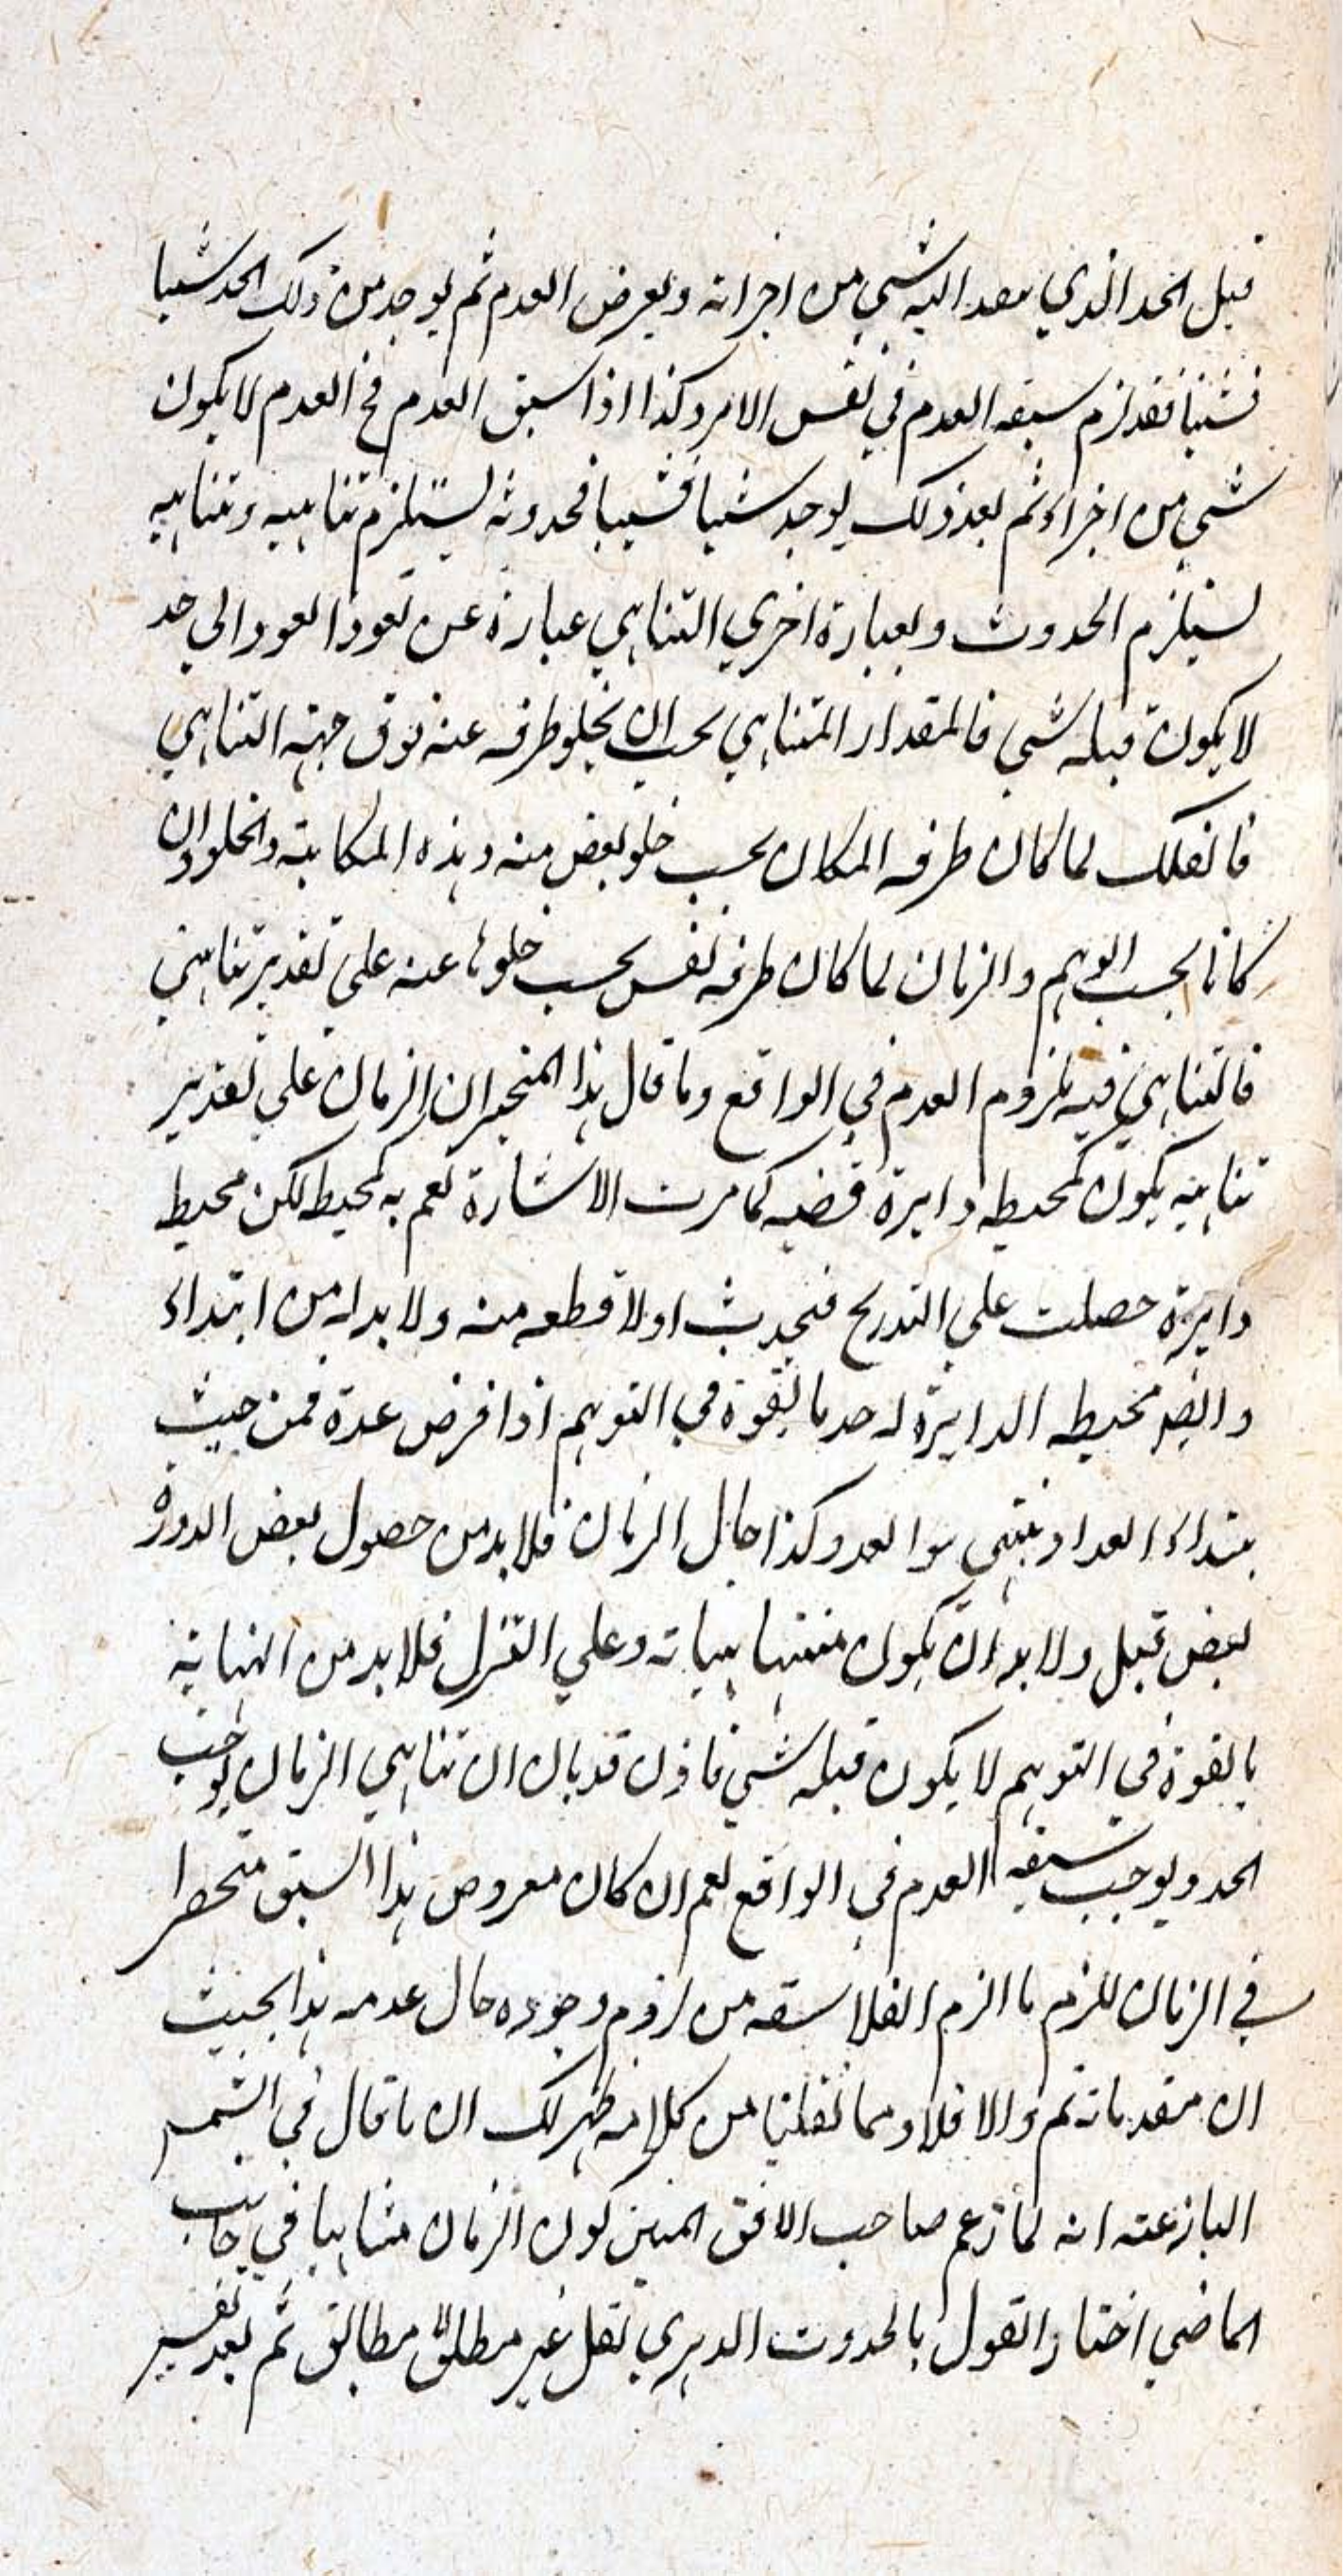 قبل الحد الذي يعد اليه شي من اجزائه ويعرض العدم ثم يوجد من ذلك الحد شيئا
فشيئا فقد لزم سبقه العدم في نفس الامر وكذا اذا سبق العدم فح العدم لا يكون
شي من اجزاء ثم بعد ذلك يوجد شيئا فشيئا فحدوثه يستلزم تناهيه وتناهيه
يستلزم الحدوث وبعبارة اخري التناهي عبارة عن العود الي حد
لا يكون قبله شي فالمقدار المتناهي يجب ان يخلو طرفه عنه فوق جهة التناهي
فالفلك لما كان طرفه المكان يجب خلو بعض منه وهذه المكانية والخلو وان
كانا بحسب الوهم والزمان لما كان طرفه نفس يجب خلوها عنه علي تقدير تناهي
فالتناهي فيه ملزوم العدم في الواقع وما قال هذا المتبحر ان الزمان علي تقدير
تناهيه يكون كمحيط دايرة كما مرت الاشارة نعم به كمحيط لكن محيط
دايرة حصلت علي التدريج فيحدث اولا قطعه منه ولا بد له من ابتداء
وايضا محيط الدايرة له حد ما بالقوة في التوهم اذا فرض عدة فمن حيث
يبتداء العداد ينتهي العد وكذا حال الزمان فلا بد من حصول بعض الدورة
بعض قبل ولا بد ان يكون وعلي التنزل فلا بد من النهاية
بالقوة في التوهم لا يكون قبله شي فاذن قد بان ان تناهي الزمان يوجب
الحد ويوجب سبقه العدم في الواقع نعم ان كان معروض هذا السبق منحصرا
في الزمان للزم ما الزم الفلاسفه من لزوم وجوده حال عدمه هذا بحيث
ان مقدماته تم والا فلا ومما نقلنا من كلامه ظهر لك ان ما قال في الشمس
البازغته انه لما زعم صاحب الافق المبين كون الزمان متناهيا في جانب
الماضي اختار القول بالحدوث الدهري نقل غير مطابق ثم بعد تفسير